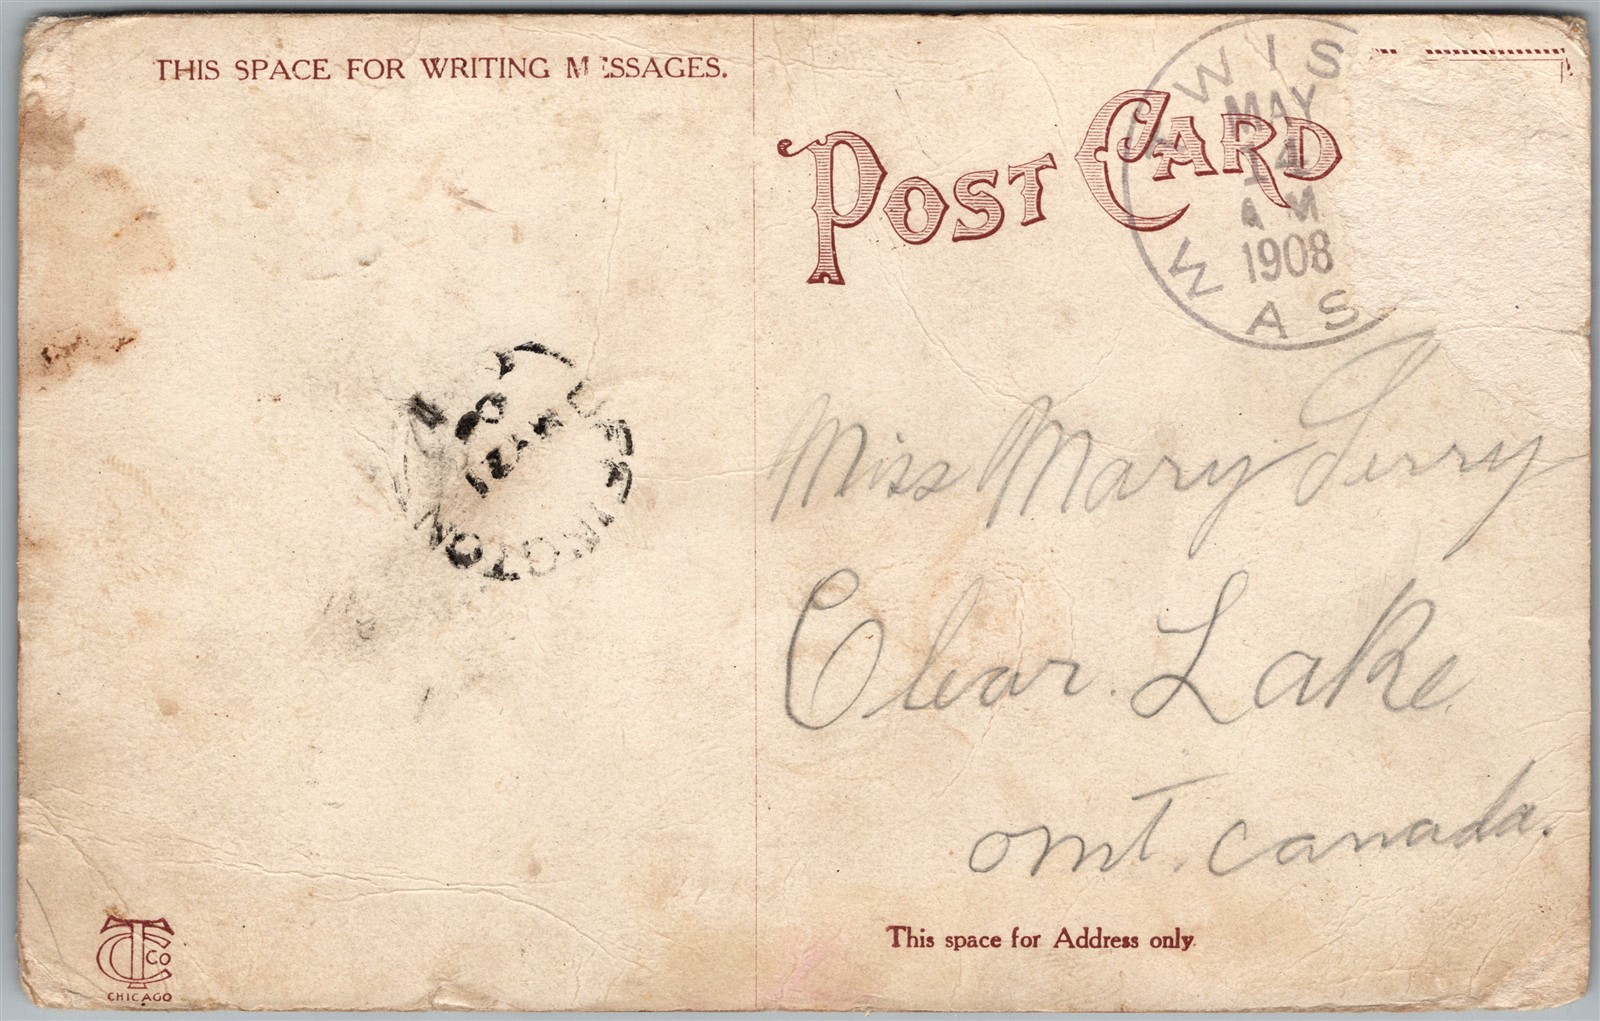 THIS SPACE FOR WRITING MESSAGES.
POST CARD
WIS
MAY
14
AM
1908
WAS
MAY 21
Miss Mary Perry
Clear. Lake.
ont. canada.
This space for Address only.
CTCo
CHICAGO